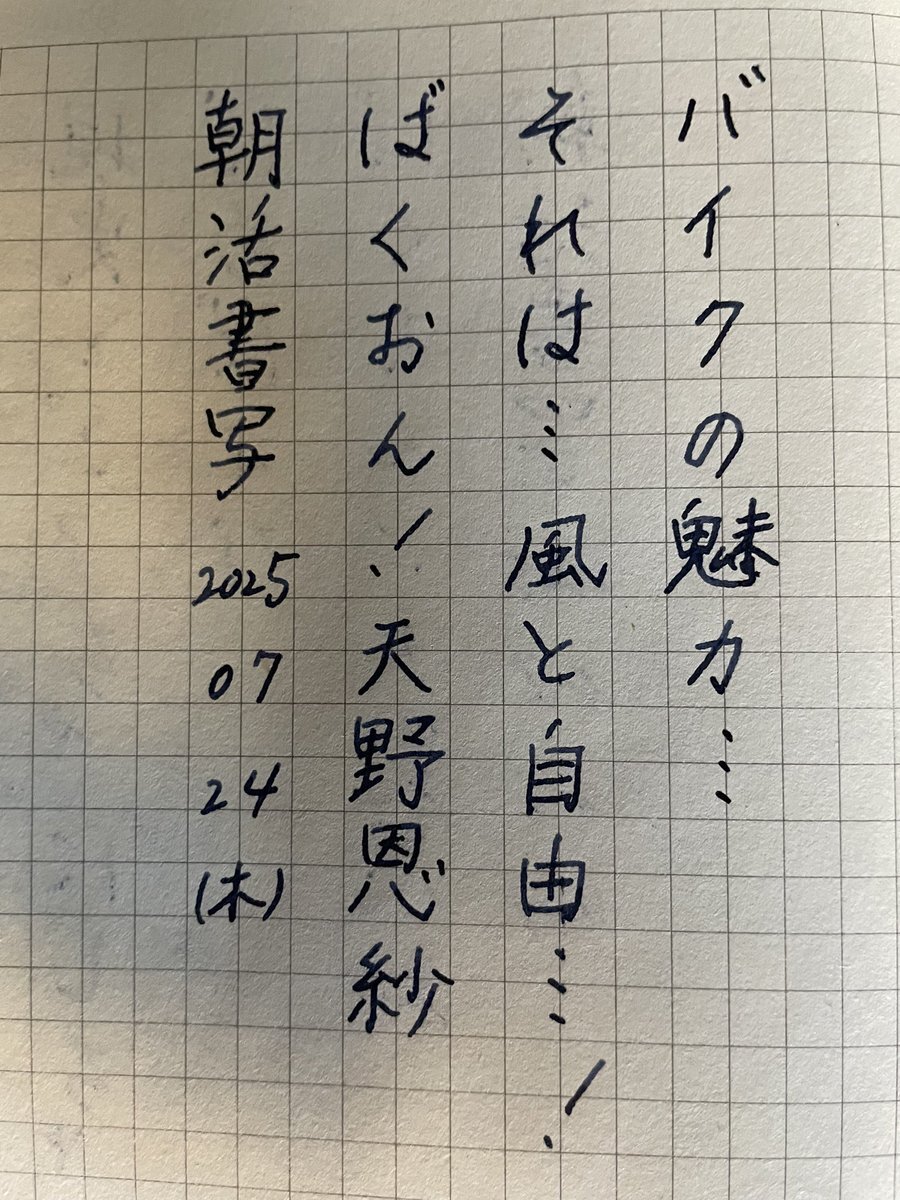 バイクの魅力…
それは…風と自由…！
ばくおん！天野恩紗
朝活書写 2025 07 24 (木)